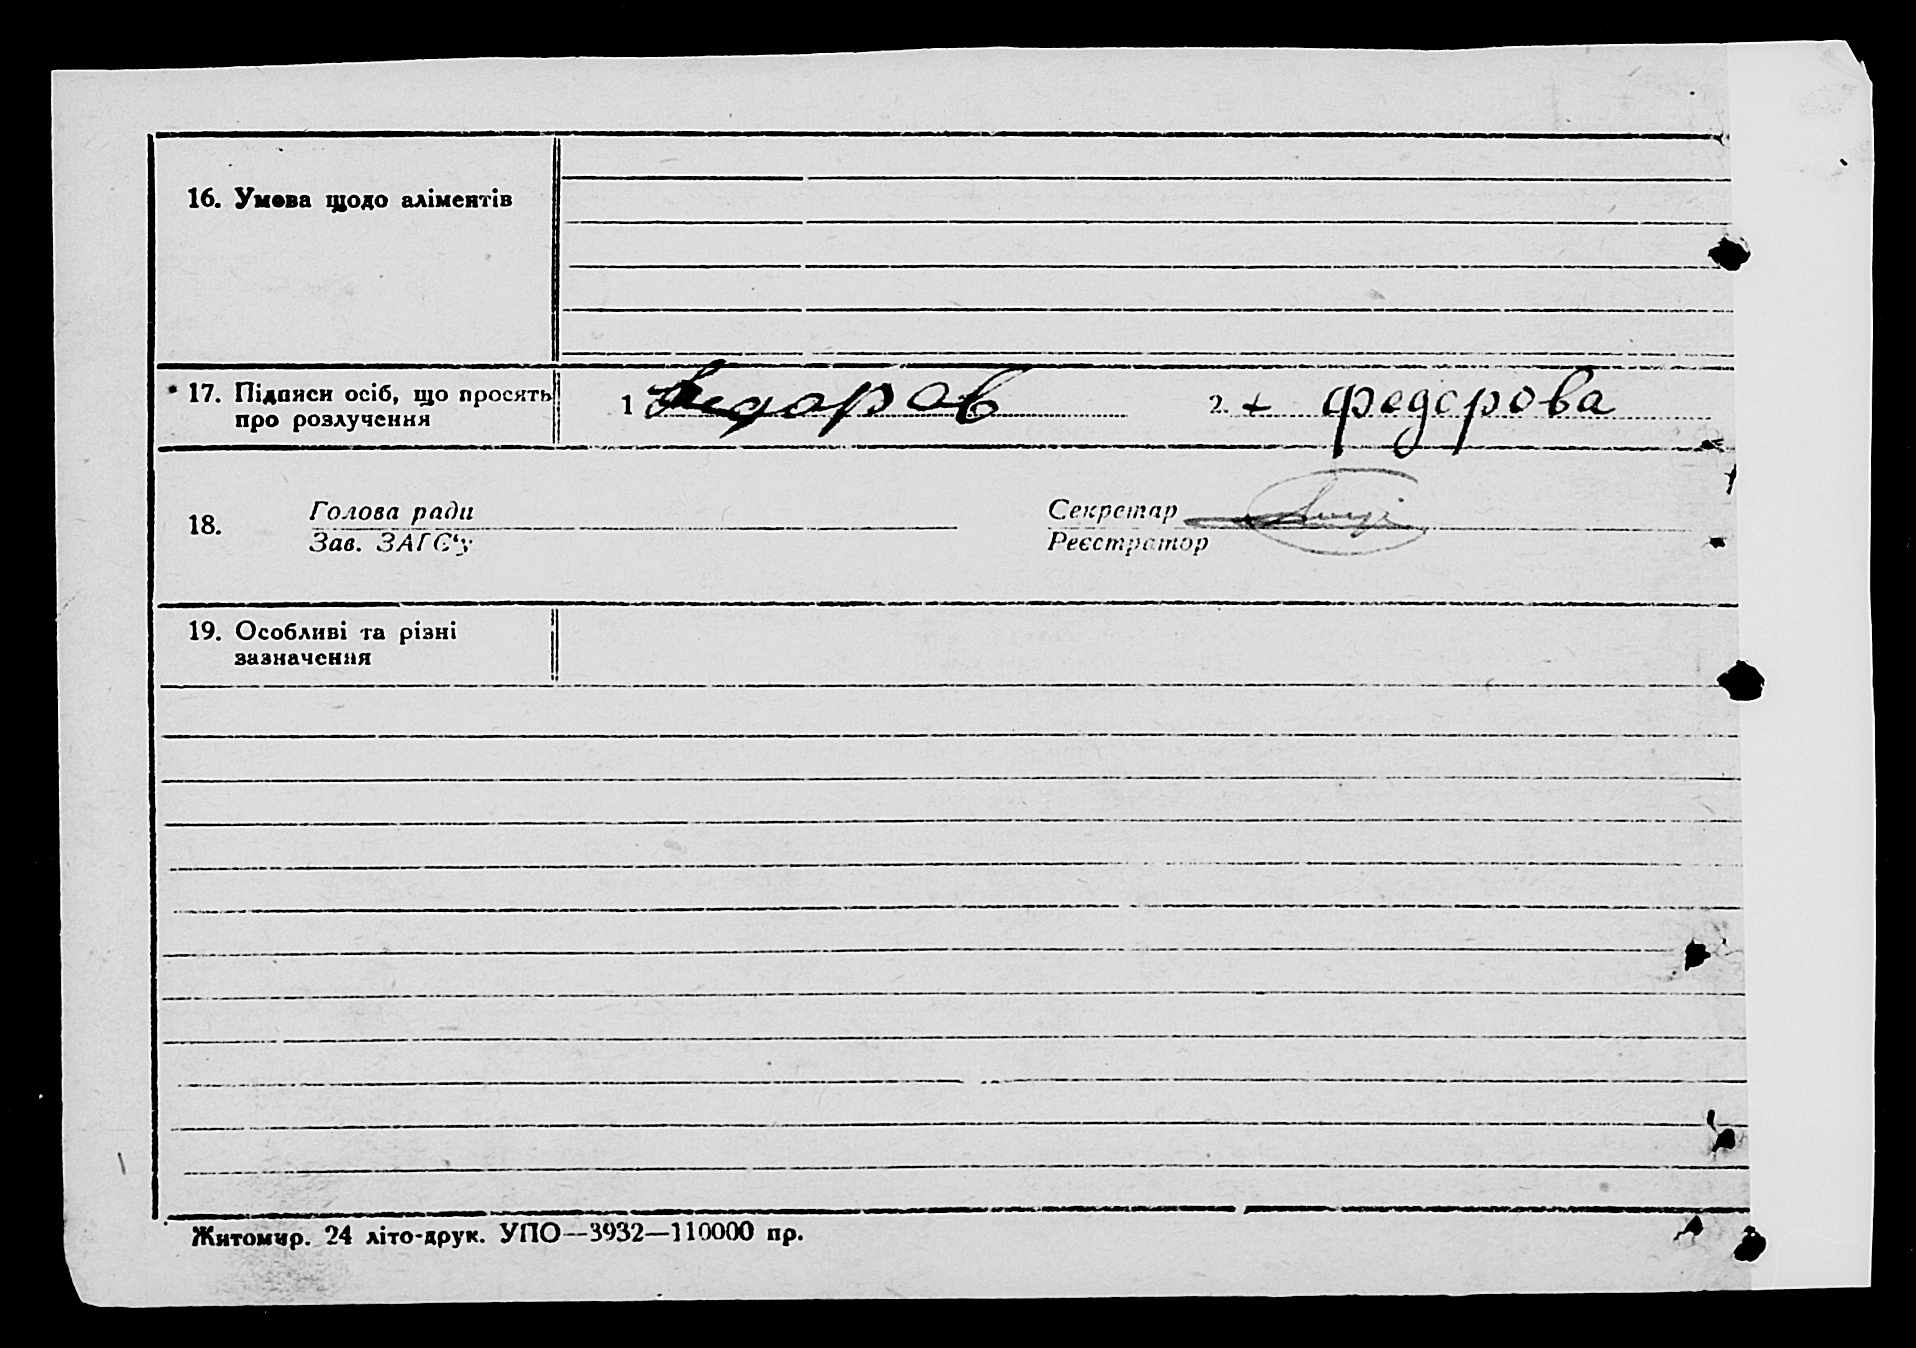 16. Умова щодо аліментів
17. Підписи осіб, що просять
про розлучення
1 Федоров
2. + Федорова
18.
Голова ради
Зав. ЗАГС'у
Секретар
Реєстратор
19. Особливі та різні
зазначення
Житомир. 24 літо-друк. УПО—3932—110000 пр.